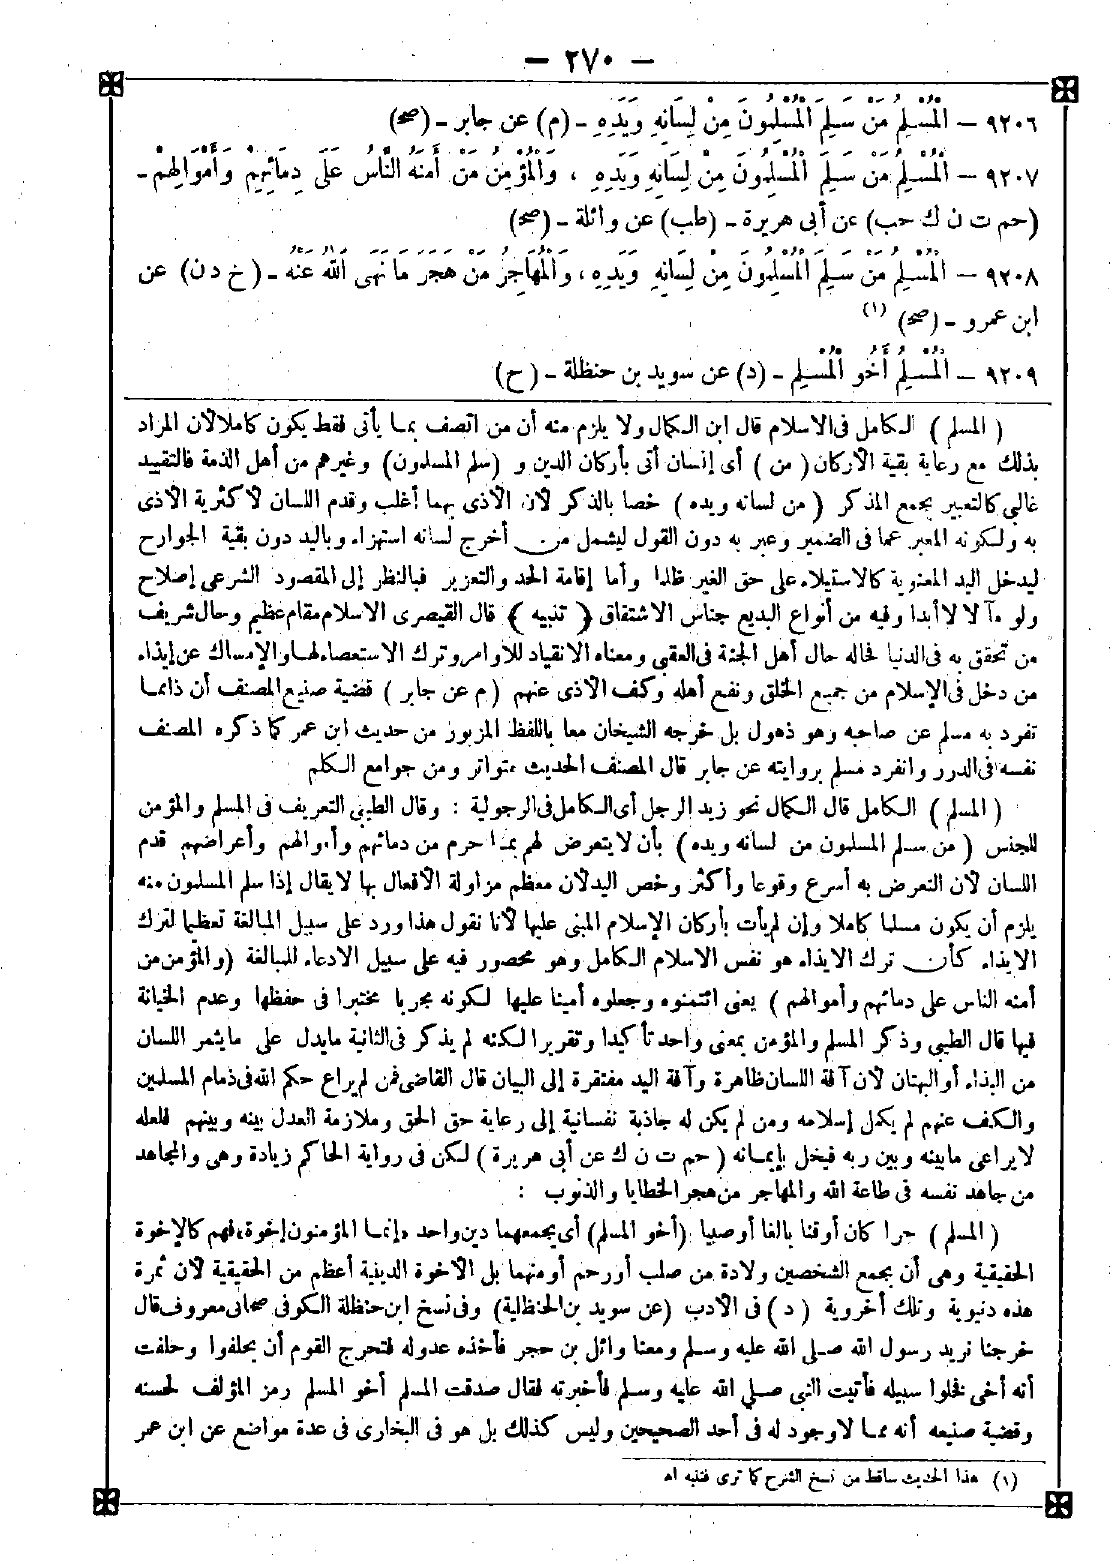 — ٢٧٠ —
٩٢٠٦ — الْمُسْلِمُ مَنْ سَلِمَ الْمُسْلِمُونَ مِنْ لِسَانِهِ وَيَدِهِ - (م) عن جابر - (صح)
٩٢٠٧ — الْمُسْلِمُ مَنْ سَلِمَ الْمُسْلِمُونَ مِنْ لِسَانِهِ وَيَدِهِ ، وَالْمُؤْمِنُ مَنْ أَمِنَهُ النَّاسُ عَلَى دِمَائِهِمْ وَأَمْوَالِهِمْ -
(حم ت ن ك حب) عن أبى هريرة - (طب) عن واثلة - (صح)
٩٢٠٨ — الْمُسْلِمُ مَنْ سَلِمَ الْمُسْلِمُونَ مِنْ لِسَانِهِ وَيَدِهِ ، وَالْمُهَاجِرُ مَنْ هَجَرَ مَا نَهَى اللهُ عَنْهُ - (خ د ن) عن
ابن عمرو - (صح) (١)
٩٢٠٩ — الْمُسْلِمُ أَخُو الْمُسْلِمِ - (د) عن سويد بن حنظلة - (ح)
( المسلم ) الكامل فى الاسلام قال ابن الكمال ولا يلزم منه أن من اتصف بما يأتى فقط يكون كاملا لأن المراد
بذلك مع رعاية بقية الأركان ( من ) أى إنسان أتى بأركان الدين و (سلم المسلمون) وغيرهم من أهل الذمة فالتقييد
غالبى كالتعبير بجمع المذكر ( من لسانه ويده ) خصا بالذكر لأن الأذى بهما أغلب وقدم اللسان لأكثرية الأذى
به ولكونه المعبر عما فى الضمير وعبر به دون القول ليشمل من أخرج لسانه استهزاء وباليد دون بقية الجوارح
ليدخل اليد المعنوية كالاستيلاء على حق الغير ظلما وأما إقامة الحد والتعزير فبالنظر إلى المقصود الشرعى إصلاح
ولو مآلا لا أبدا وفيه من أنواع البديع جناس الاشتقاق ( تنبيه ) قال القيصرى الاسلام مقام عظيم وحال شريف
من تحقق به فى الدنيا فحاله حال أهل الجنة فى العقبى ومعناه الانقياد للأوامر وترك الاستعصاء لها والإمساك عن إيذاء
من دخل فى الإسلام من جميع الخلق ونفع أهله وكف الأذى عنهم ( م عن جابر ) قضية صنيع المصنف أن ذا مما
تفرد به مسلم عن صاحبه وهو ذهول بل خرجه الشيخان معا باللفظ المزبور من حديث ابن عمر كما ذكره المصنف
نفسه فى الدرر وانفرد مسلم بروايته عن جابر قال المصنف الحديث متواتر ومن جوامع الكلم
( المسلم ) الكامل قال الكمال نحو زيد الرجل أى الكامل فى الرجولية : وقال الطيبى التعريف فى المسلم والمؤمن
للجنس ( من سلم المسلمون من لسانه ويده ) بأن لا يتعرض لهم بما حرم من دمائهم وأموالهم وأعراضهم قدم
اللسان لأن التعرض به أسرع وقوعا وأكثر وخص اليد لأن معظم مزاولة الأفعال بها لا يقال إذا سلم المسلمون منه
يلزم أن يكون مسلما كاملا وإن لم يأت بأركان الإسلام المبنى عليها لأنا نقول هذا ورد على سبيل المبالغة تعظيما لترك
الإيذاء كأن ترك الايذاء هو نفس الاسلام الكامل وهو محصور فيه على سبيل الادعاء للمبالغة (والمؤمن من
أمنه الناس على دمائهم وأموالهم ) يعنى ائتمنوه وجعلوه أمينا عليها لكونه مجربا مختبرا فى حفظها وعدم الخيانة
فيها قال الطيبى وذكر المسلم والمؤمن بمعنى واحد تأكيدا وتقريرا لكنه لم يذكر فى الثانية ما يدل على ما يثمر اللسان
من البذاء أو البهتان لأن آفة اللسان ظاهرة وآفة اليد مفتقرة إلى البيان قال القاضى فمن لم يراع حكم الله فى ذمام المسلمين
والكف عنهم لم يكمل إسلامه ومن لم يكن له جاذبة نفسانية إلى رعاية حق الحق وملازمة العدل بينه وبينهم فلعله
لا يراعى ما بينه وبين ربه فيخل بإيمانه ( حم ت ن ك عن أبى هريرة ) لكن فى رواية الحاكم زيادة وهى والمجاهد
من جاهد نفسه فى طاعة الله والمهاجر من هجر الخطايا والذنوب :
( المسلم ) حرا كان أو قنا بالغا أو صبيا (أخو المسلم) أى يجمعهما دين واحد «إنما المؤمنون إخوة» فهم كالإخوة
الحقيقية وهى أن يجمع الشخصين ولادة من صلب أو رحم أو منهما بل الأخوة الدينية أعظم من الحقيقية لأن ثمرة
هذه دنيوية وتلك أخروية ( د ) فى الأدب (عن سويد بن الحنظلية) وفى نسخ ابن حنظلة الكوفى صحابى معروف قال
خرجنا نريد رسول الله صلى الله عليه وسلم ومعنا وائل بن حجر فأخذه عدو له فتحرج القوم أن يحلفوا وحلفت
أنه أخى فخلوا سبيله فأتيت النبى صلى الله عليه وسلم فأخبرته فقال صدقت المسلم أخو المسلم رمز المؤلف لحسنه
وقضية صنيعه أنه مما لا وجود له فى أحد الصحيحين وليس كذلك بل هو فى البخارى فى عدة مواضع عن ابن عمر
(١) هذا الحديث ساقط من نسخ الشرح كما ترى فتنبه اه